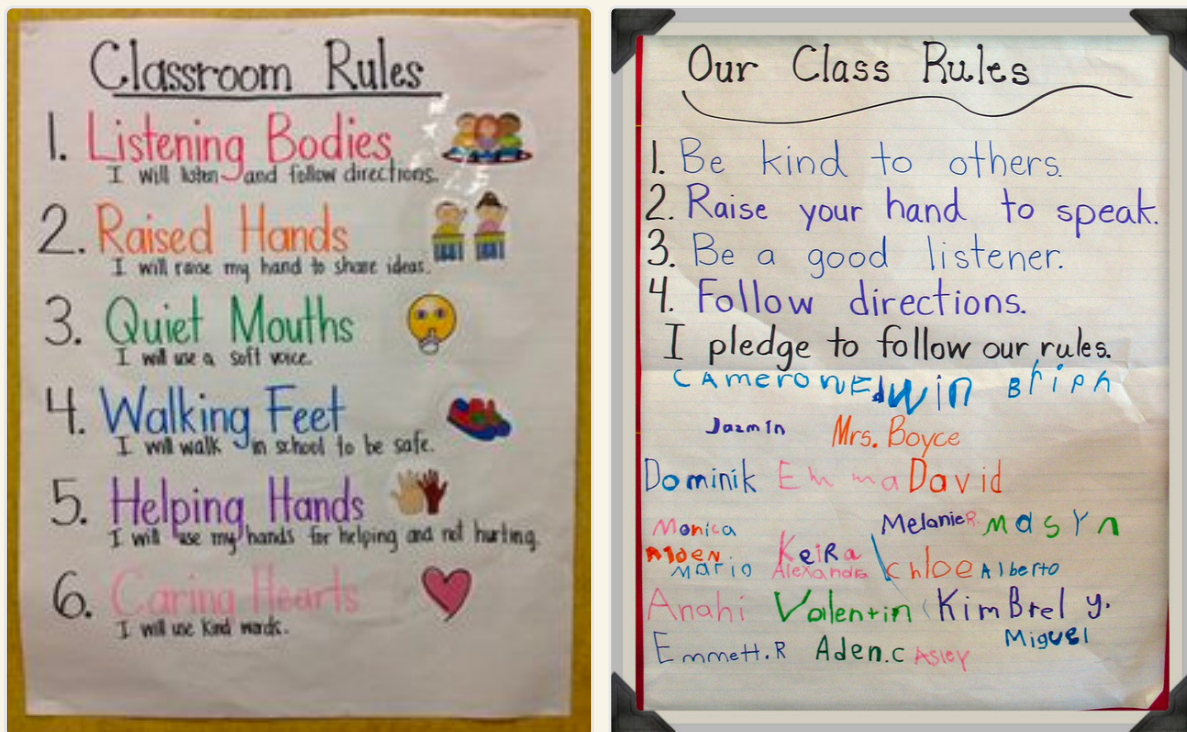 Classroom Rules
1. Listening Bodies
I will listen and follow directions.
2. Raised Hands
I will raise my hand to share ideas.
3. Quiet Mouths
I will use a soft voice.
4. Walking Feet
I will walk in school to be safe.
5. Helping Hands
I will use my hands for helping and not hurting.
6. Caring Hearts
I will use kind words.
Our Class Rules
1. Be kind to others.
2. Raise your hand to speak.
3. Be a good listener.
4. Follow directions.
I pledge to follow our rules.
CAmeron Edwin
Jazmin Mrs. Boyce
Dominik Emma David
Monica Melanie R. Masyn
Aiden KeiRa Khloe
Mario Alexandra Alberto
Anahi Valentin KimBrely.
Emmett.R Aden.C Asley Miguel